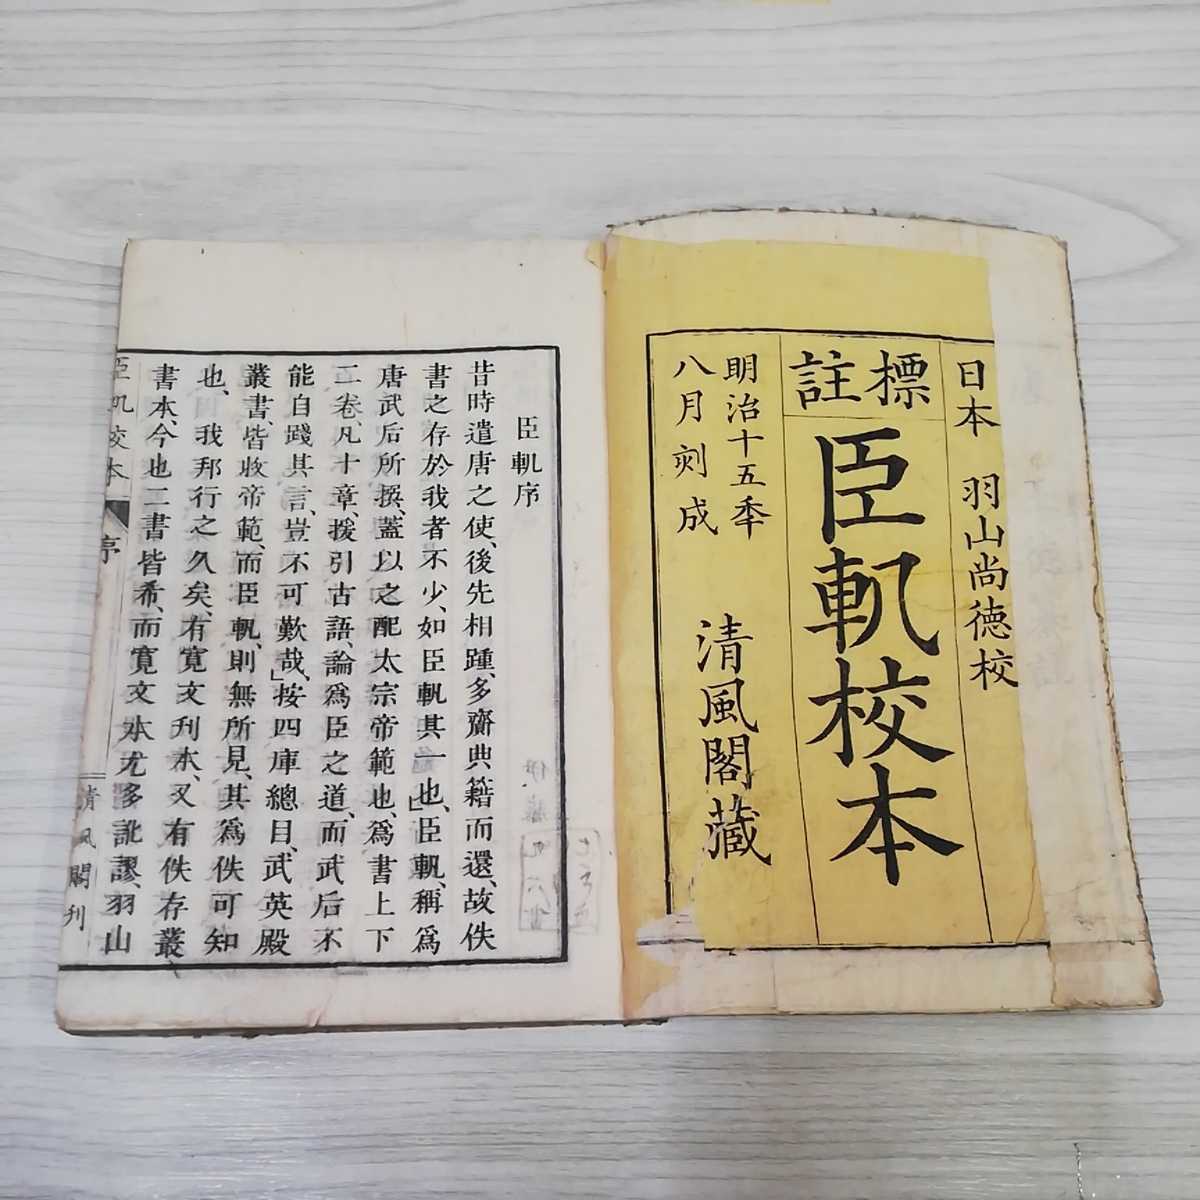 日本 羽山尚德校
標註
臣軓校本
明治十五秊
八月刻成
清風閣藏
臣軓序
昔時遣唐之使、後先相踵、多齎典籍而還、故佚
書之存於我者不少、如臣軓其一也、臣軓、稱爲
唐武后所撰、蓋以之配太宗帝範也、爲書上下
二卷、凡十章、援引古語、論爲臣之道、而武后不
能自踐其言、豈不可歎哉、按四庫總目、武英殿
叢書、皆收帝範、而臣軓、則無所見、其爲佚可知
也、我邦行之久矣、有寬文刋本、又有佚存叢
書本、今也二書皆希、而寬文本尤多訛謬、羽山
臣軓校本
序
清風閣刋